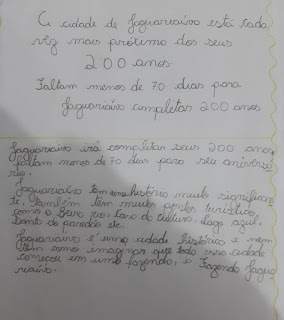 A cidade de Jaguariaíva está cada
vez mais próximo dos seus
200 anos.
Faltam menos de 70 dias para
Jaguariaíva completar 200 anos
Jaguariaíva irá completar seus 200 anos,
faltam menos de 70 dias para seu anivers
rio.
Jaguariaíva tem uma história muito significan
te, também tem muitos pontos turísticos
como o lago azul,
etc.
Jaguariaíva é uma cidade histórica e nem
tem como imaginar que toda essa cidade
começou em uma fazenda, a Fazenda Jagua
riaíva.